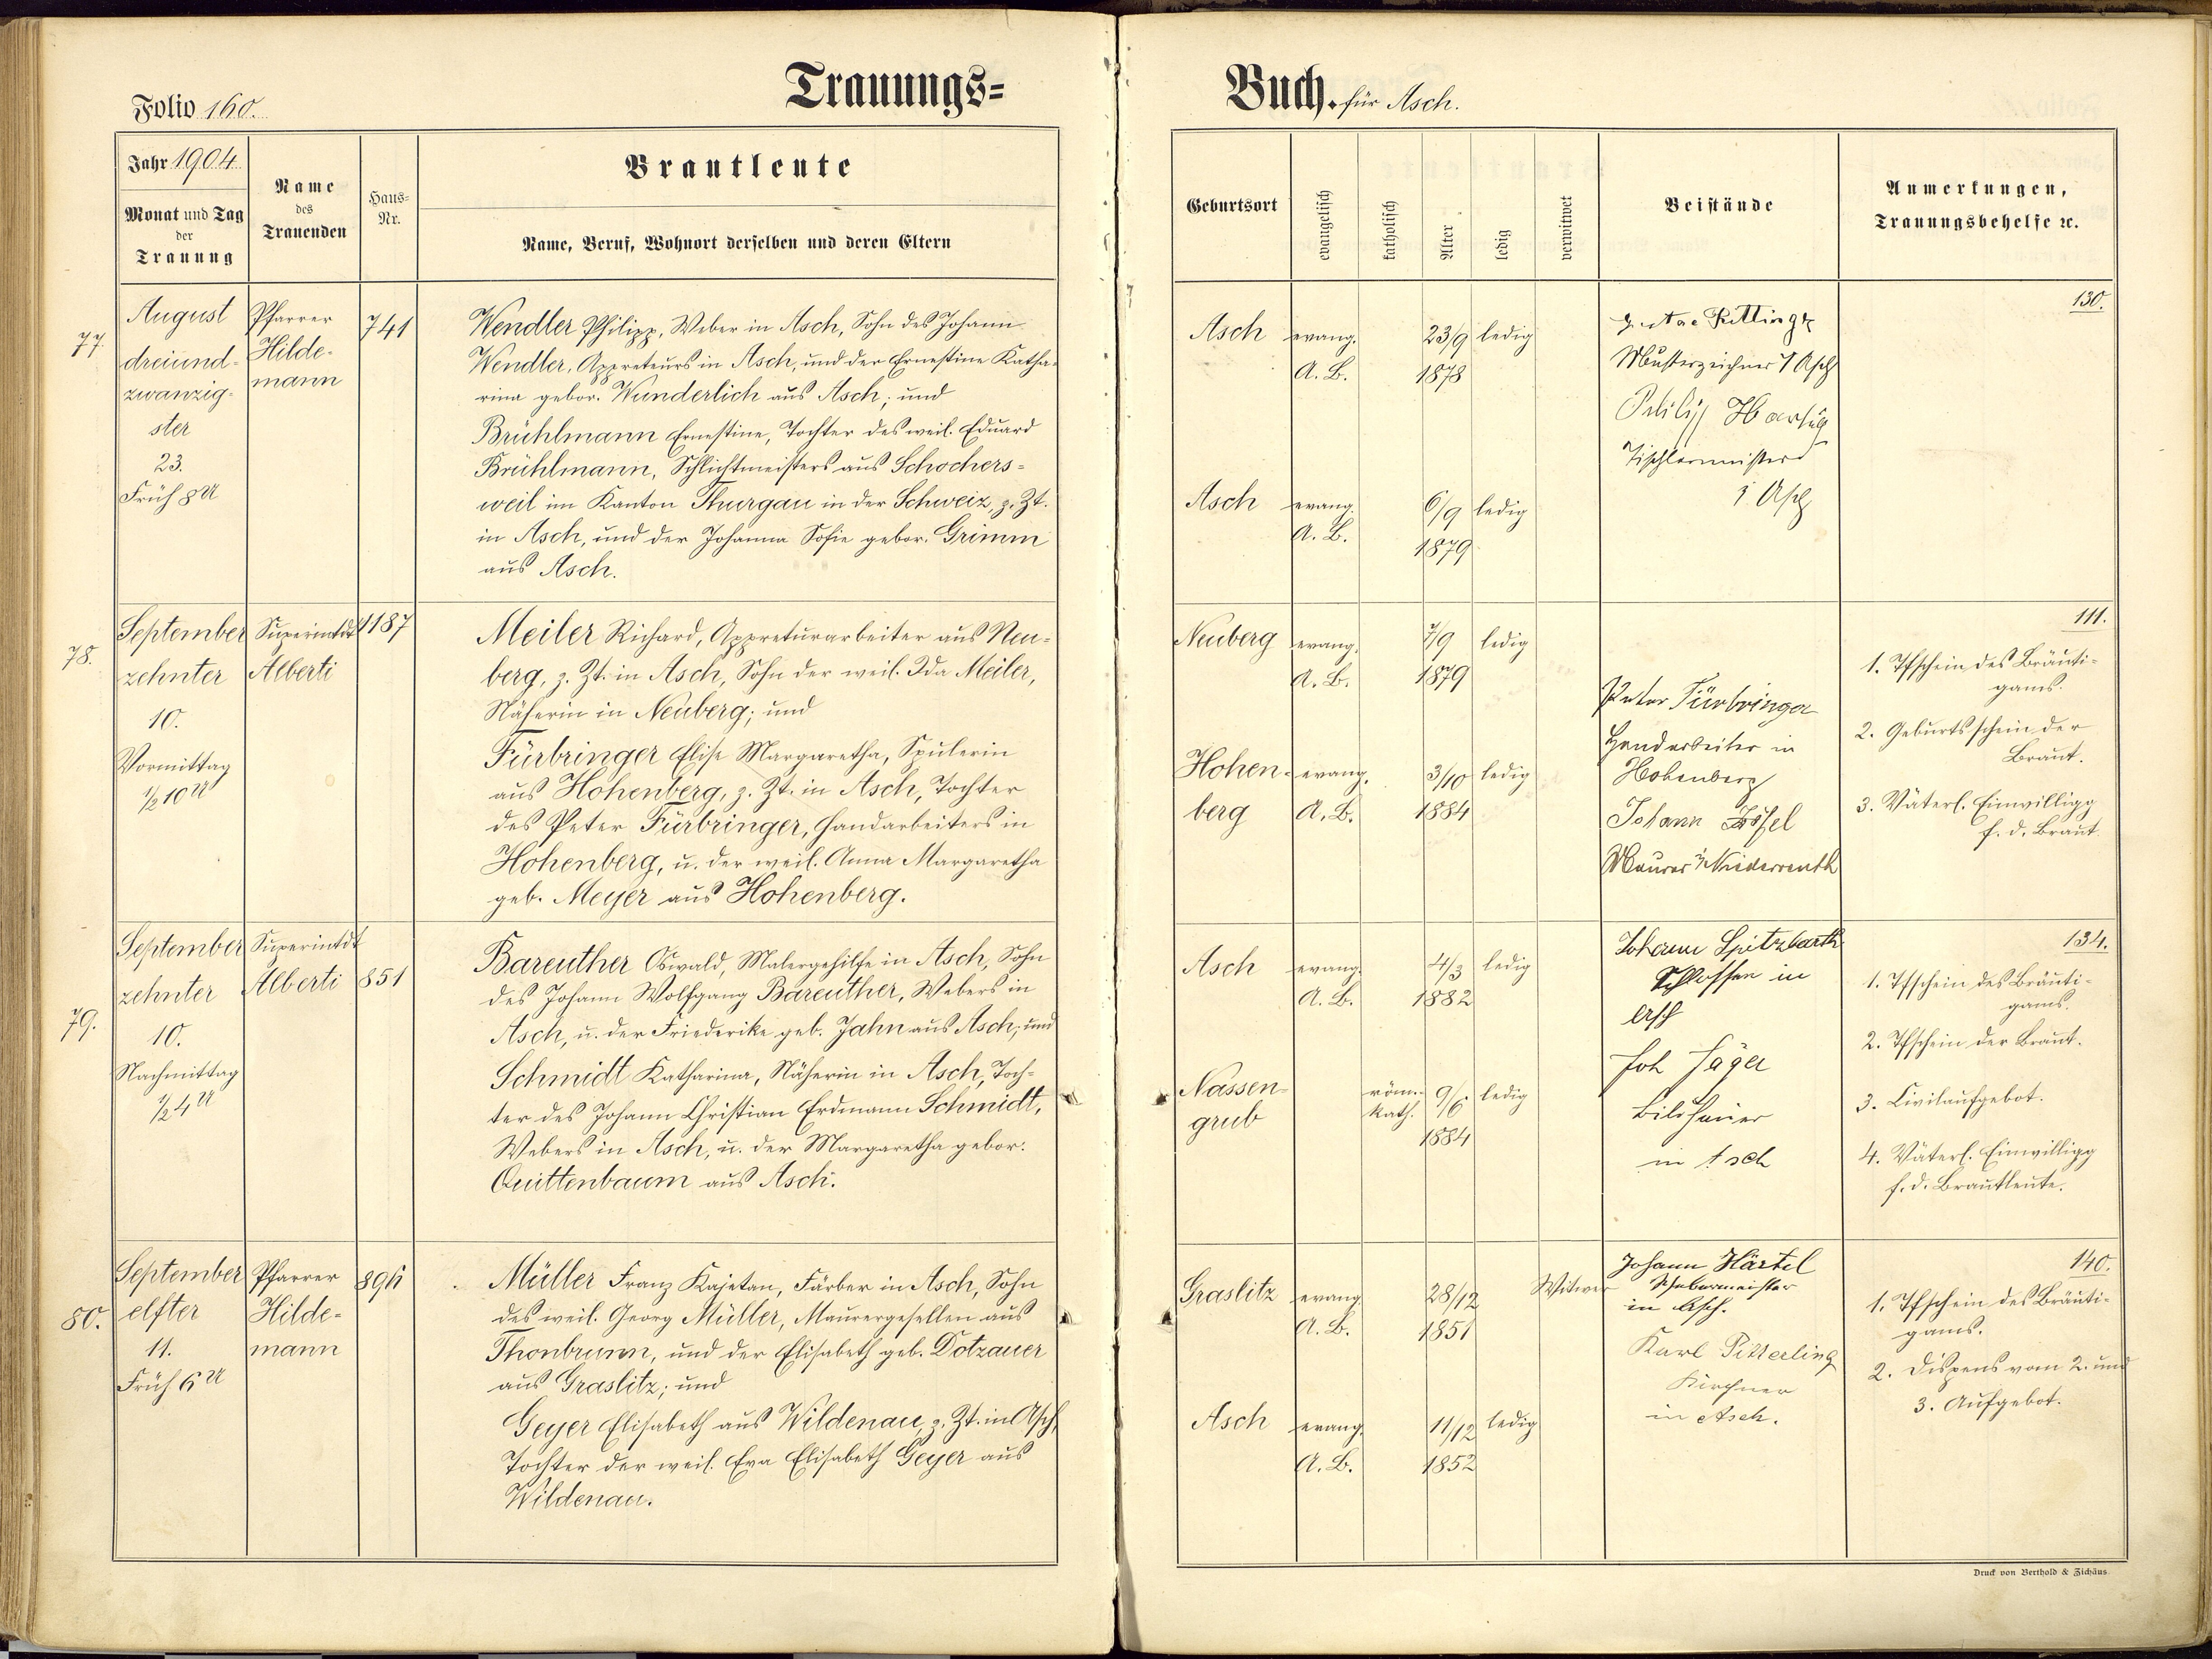 Trauungs=
Folio 160.
Jahr 1904.
Monat und Tag
der
Trauung
Name
des
Trauenden
Haus-
Nr.
Brautleute
Name, Beruf, Wohnort derselben und deren Eltern
77.
August
dreiund-
zwanzig-
ster
23.
Früh 8 U
Pfarrer
Hilde-
mann
741
Wendler Philipp, Weber in Asch, Sohn des Johann
Wendler, Appreteurs in Asch, und der Ernestine Katha-
rina gebor. Wunderlich aus Asch; und
Brühlmann Ernestine, Tochter des weil. Eduard
Brühlmann, Schlichtmeisters aus Schochers-
weil im Kanton Thurgau in der Schweiz, z. Zt.
in Asch, und der Johanna Sofie gebor. Grimm
aus Asch.
78.
September
zehnter
10.
Vormittag
½ 10 U
Superintdt
Alberti
1187
Meiler Richard, Appreturarbeiter aus Neu-
berg, z. Zt. in Asch, Sohn der weil. Ida Meiler,
Näherin in Neuberg; und
Fürbringer Elise Margaretha, Spulerin
aus Hohenberg, z. Zt. in Asch, Tochter
des Peter Fürbringer, Handarbeiters in
Hohenberg, u. der weil. Anna Margaretha
geb. Meyer aus Hohenberg.
79.
September
zehnter
10.
Nachmittag
½ 4 U
Superintdt
Alberti
851
Bareuther Oswald, Malergehilfe in Asch, Sohn
des Johann Wolfgang Bareuther, Webers in
Asch, u. der Friederike geb. Jahn aus Asch; und
Schmidt Katharina, Näherin in Asch, Toch-
ter des Johann Christian Erdmann Schmidt,
Webers in Asch, u. der Margaretha gebor.
Quittenbaum aus Asch.
80.
September
elfter
11.
Früh 6 U
Pfarrer
Hilde-
mann
896
Müller Franz Kajetan, Färber in Asch, Sohn
des weil. Georg Müller, Maurergesellen aus
Thonbrunn, und der Elisabeth geb. Dotzauer
aus Graslitz; und
Geyer Elisabeth aus Wildenau, z. Zt. in Asch,
Tochter der weil. Eva Elisabeth Geyer aus
Wildenau.
Buch. für Asch.
Geburtsort
evangelisch
katholisch
Alter
ledig
verwitwet
Beistände
Anmerkungen,
Trauungsbehelfe ꝛc.
Asch
evang.
A. B.
23/9
1878
ledig
Asch
evang.
A. B.
6/9
1879
ledig
Musterzeichner Asch
Philipp
Tischlermeister
i Asch
130.
Neuberg
evang.
A. B.
7/9
1879
ledig
Hohen-
berg
evang.
A. B.
3/10
1884
ledig
Peter Fürbringer
Handarbeiter in
Hohenberg
Johann
Maurer in Niederreuth
111.
1. Tfschein des Bräuti-
gams.
2. Geburtsschein der
Braut.
3. Väterl. Einwilligg
f. d. Braut
Asch
evang.
A. B.
4/3
1882
ledig
Nassen-
grub
röm.-
kath.
9/6
1884
ledig
Johann Spitzbarth
Schlosser in
Asch
Joh Jäger
Bildhauer
in Asch
134.
1. Tfschein des Bräuti-
gams.
2. Tfschein der Braut.
3. Civilaufgebot.
4. Väterl. Einwilligg
f. d. Brautleute.
Graslitz
evang.
A. B.
28/12
1851
Witwer
Asch
evang.
A. B.
11/12
1852
ledig
Johann Härtel
Webermeister
in Asch.
Karl Pitterling
Kirchner
in Asch.
140.
1. Tfschein des Bräuti-
gams.
2. Dispens vom 2. und
3. Aufgebot.
Druck von Berthold & Zichäus